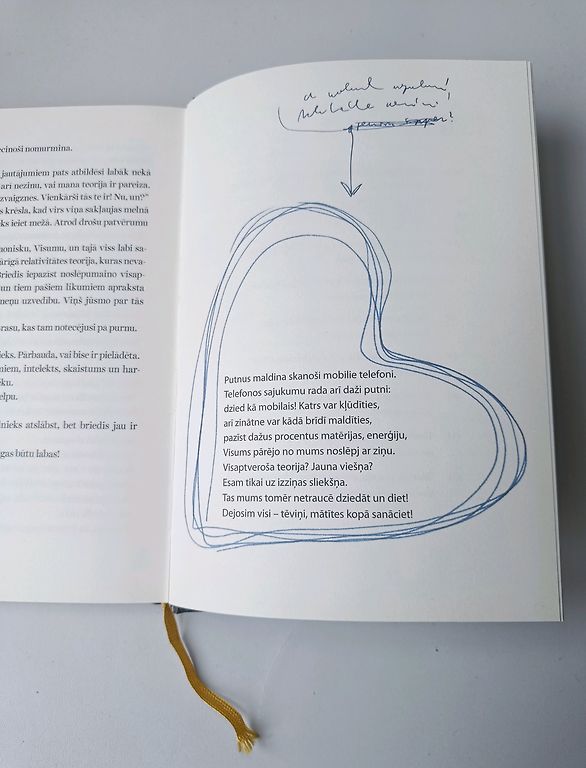 cinoši nomurmina.
jautājumiem pats atbildēsi labāk nekā
arī nezinu, vai mana teorija ir pareiza,
zvaigznes. Vienkārši tās te ir! Nu, un?"
s krēsla, kad virs viņa sakļaujas melnā
ks ieiet mežā. Atrod drošu patvērumu
monisku, Visumu, un tajā viss labi sa-
ārīgā relativitātes teorija, kuras neva-
Briedis iepazīst noslēpumaino visap-
un tiem pašiem likumiem apraksta
meņu uzvedību. Viņš jūsmo par tās
orasu, kas tam notecējusi pa purnu.
ieks. Pārbauda, vai bise ir pielādēta.
niem, intelekts, skaistums un har-
ku.
elpu.
nieks atslābst, bet briedis jau ir
gas būtu labas!
Putnus maldina skanoši mobilie telefoni.
Telefonos sajukumu rada arī daži putni:
dzied kā mobilais! Katrs var kļūdīties,
arī zinātne var kādā brīdī maldīties,
pazīst dažus procentus matērijas, enerģiju,
Visums pārējo no mums noslēpj ar ziņu.
Visaptveroša teorija? Jauna viešņa?
Esam tikai uz izziņas sliekšņa.
Tas mums tomēr netraucē dziedāt un diet!
Dejosim visi – tēviņi, mātītes kopā sanāciet!